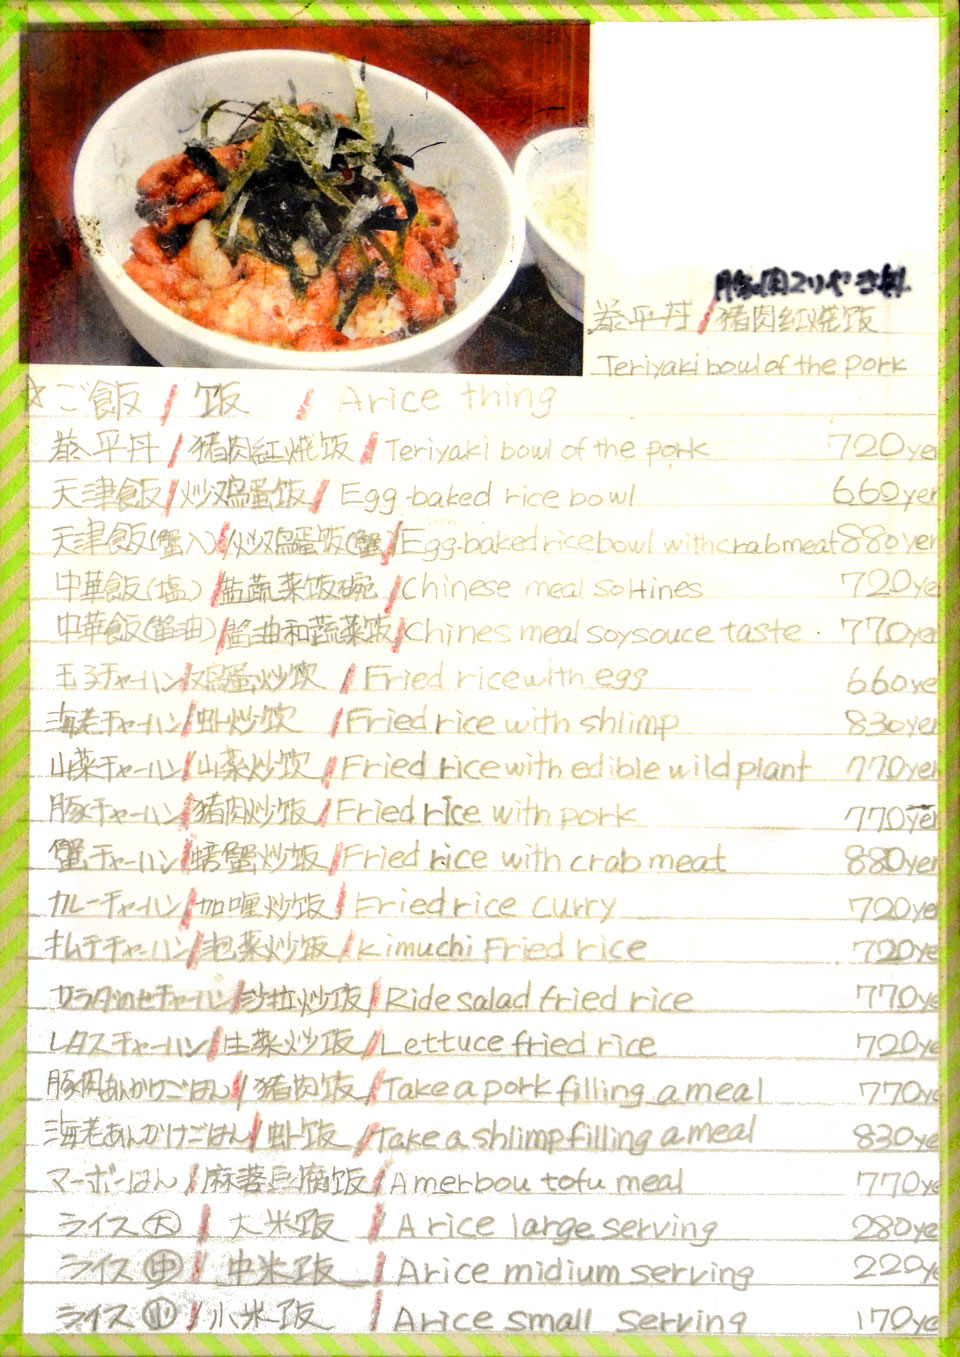 豚肉てりやき丼
泰平丼/猪肉红烧饭
Teriyaki bowl of the pork
☆ご飯/饭/A rice thing
泰平丼/猪肉红烧饭/Teriyaki bowl of the pork 720yen
天津飯/炒鸡蛋饭/Egg-baked rice bowl 660yen
天津飯(蟹入)/炒鸡蛋饭(蟹)/Egg-baked rice bowl with crab meat 880yen
中華飯(塩)/盐蔬菜饭碗/Chinese meal soltines 720yen
中華飯(醤油)/酱油和蔬菜饭/Chines meal soysouce taste 770yen
玉子チャーハン/鸡蛋炒饭/Fried rice with egg 660yen
海老チャーハン/虾炒饭/Fried rice with shlimp 830yen
山菜チャーハン/山菜炒饭/Fried rice with edible wild plant 770yen
豚チャーハン/猪肉炒饭/Fried rice with pork 770yen
蟹チャーハン/螃蟹炒饭/Fried rice with crab meat 880yen
カレーチャーハン/咖喱炒饭/Fried rice curry 720yen
キムチチャーハン/泡菜炒饭/kimuchi Fried rice 720yen
サラダのせチャーハン/沙拉炒饭/Ride salad fried rice 770ye
レタスチャーハン/生菜炒饭/Lettuce fried rice 720ye
豚肉あんかけごはん/猪肉饭/Take a pork filling a meal 770ye
海老あんかけごはん/虾饭/Take a shlimp filling a meal 830ye
マーボーはん/麻婆豆腐饭/A merbou tofu meal 770ye
ライス大/大米饭/A rice large serving 280ye
ライス中/中米饭/A rice midium serving 220ye
ライス小/小米饭/A rice small serving 170ye